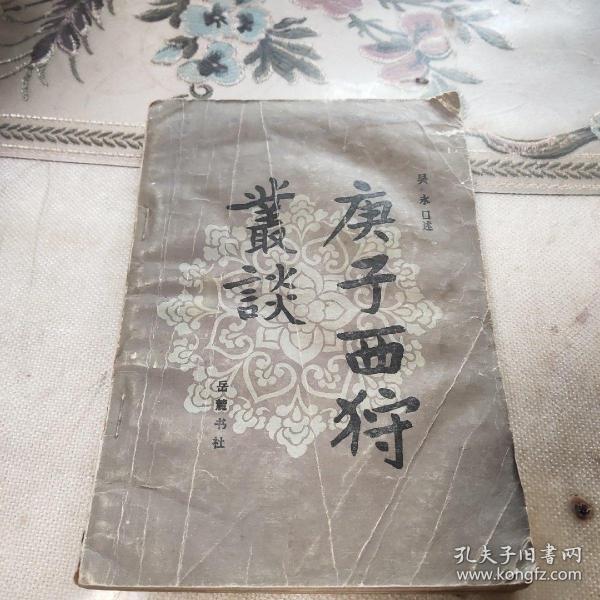 吴永口述
庚子西狩
叢談
岳麓书社
孔夫子旧書网
www.kongfz.com